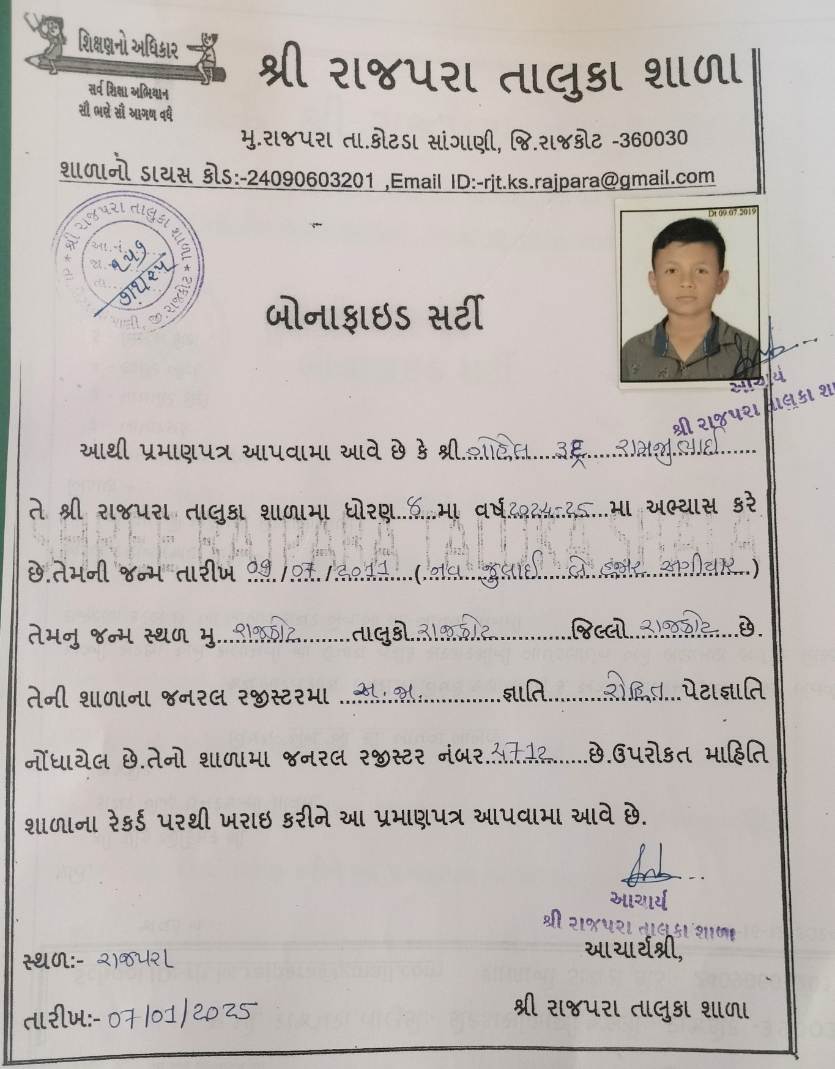 શિક્ષણનો અધિકાર
સર્વ શિક્ષા અભિયાન
સૌ ભણે સૌ આગળ વધે
શ્રી રાજપરા તાલુકા શાળા
મુ.રાજપરા તા.કોટડા સાંગાણી, જિ.રાજકોટ -360030
શાળાનો ડાયસ કોડ:-24090603201 ,Email ID:-rjt.ks.rajpara@gmail.com
શ્રી રાજપરા તાલુકા શાળા
Dt 09.07.2019
બોનાફાઇડ સર્ટી
આચાર્ય
શ્રી રાજપરા તાલુકા શા
આથી પ્રમાણપત્ર આપવામા આવે છે કે શ્રી.ગોહેલ રૂદ્ર રામજીભાઈ
તે શ્રી રાજપરા તાલુકા શાળામા ધોરણ 8 મા વર્ષ 2024-25 મા અભ્યાસ કરે
SHREE RAJPARA TALUKA SHALA
છે.તેમની જન્મ તારીખ 09/07/2011 (નવ જુલાઈ બે હજાર અગીયાર)
તેમનુ જન્મ સ્થળ મુ. રાજકોટ તાલુકો રાજકોટ જિલ્લો રાજકોટ છે.
તેની શાળાના જનરલ રજીસ્ટરમા અ.જા. જ્ઞાતિ રોહિત પેટાજ્ઞાતિ
નોંધાયેલ છે.તેનો શાળામા જનરલ રજીસ્ટર નંબર 4712 છે.ઉપરોકત માહિતિ
શાળાના રેકર્ડ પરથી ખરાઇ કરીને આ પ્રમાણપત્ર આપવામા આવે છે.
આચાર્ય
શ્રી રાજપરા તાલુકા શાળા
આચાર્યશ્રી,
સ્થળ:- રાજપરા
શ્રી રાજપરા તાલુકા શાળા
તારીખ:- 07/01/2025